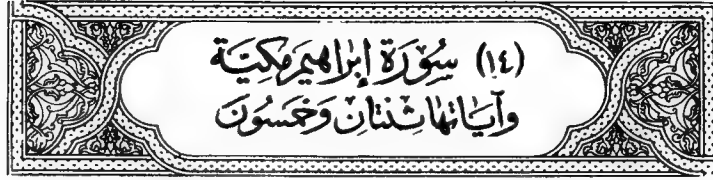 (١٤) سُوْرَة إبْراهِيمَ مَكِيَّة
وَآيَاتهَا ثِنْتَانِ وَخَمْسُونَ